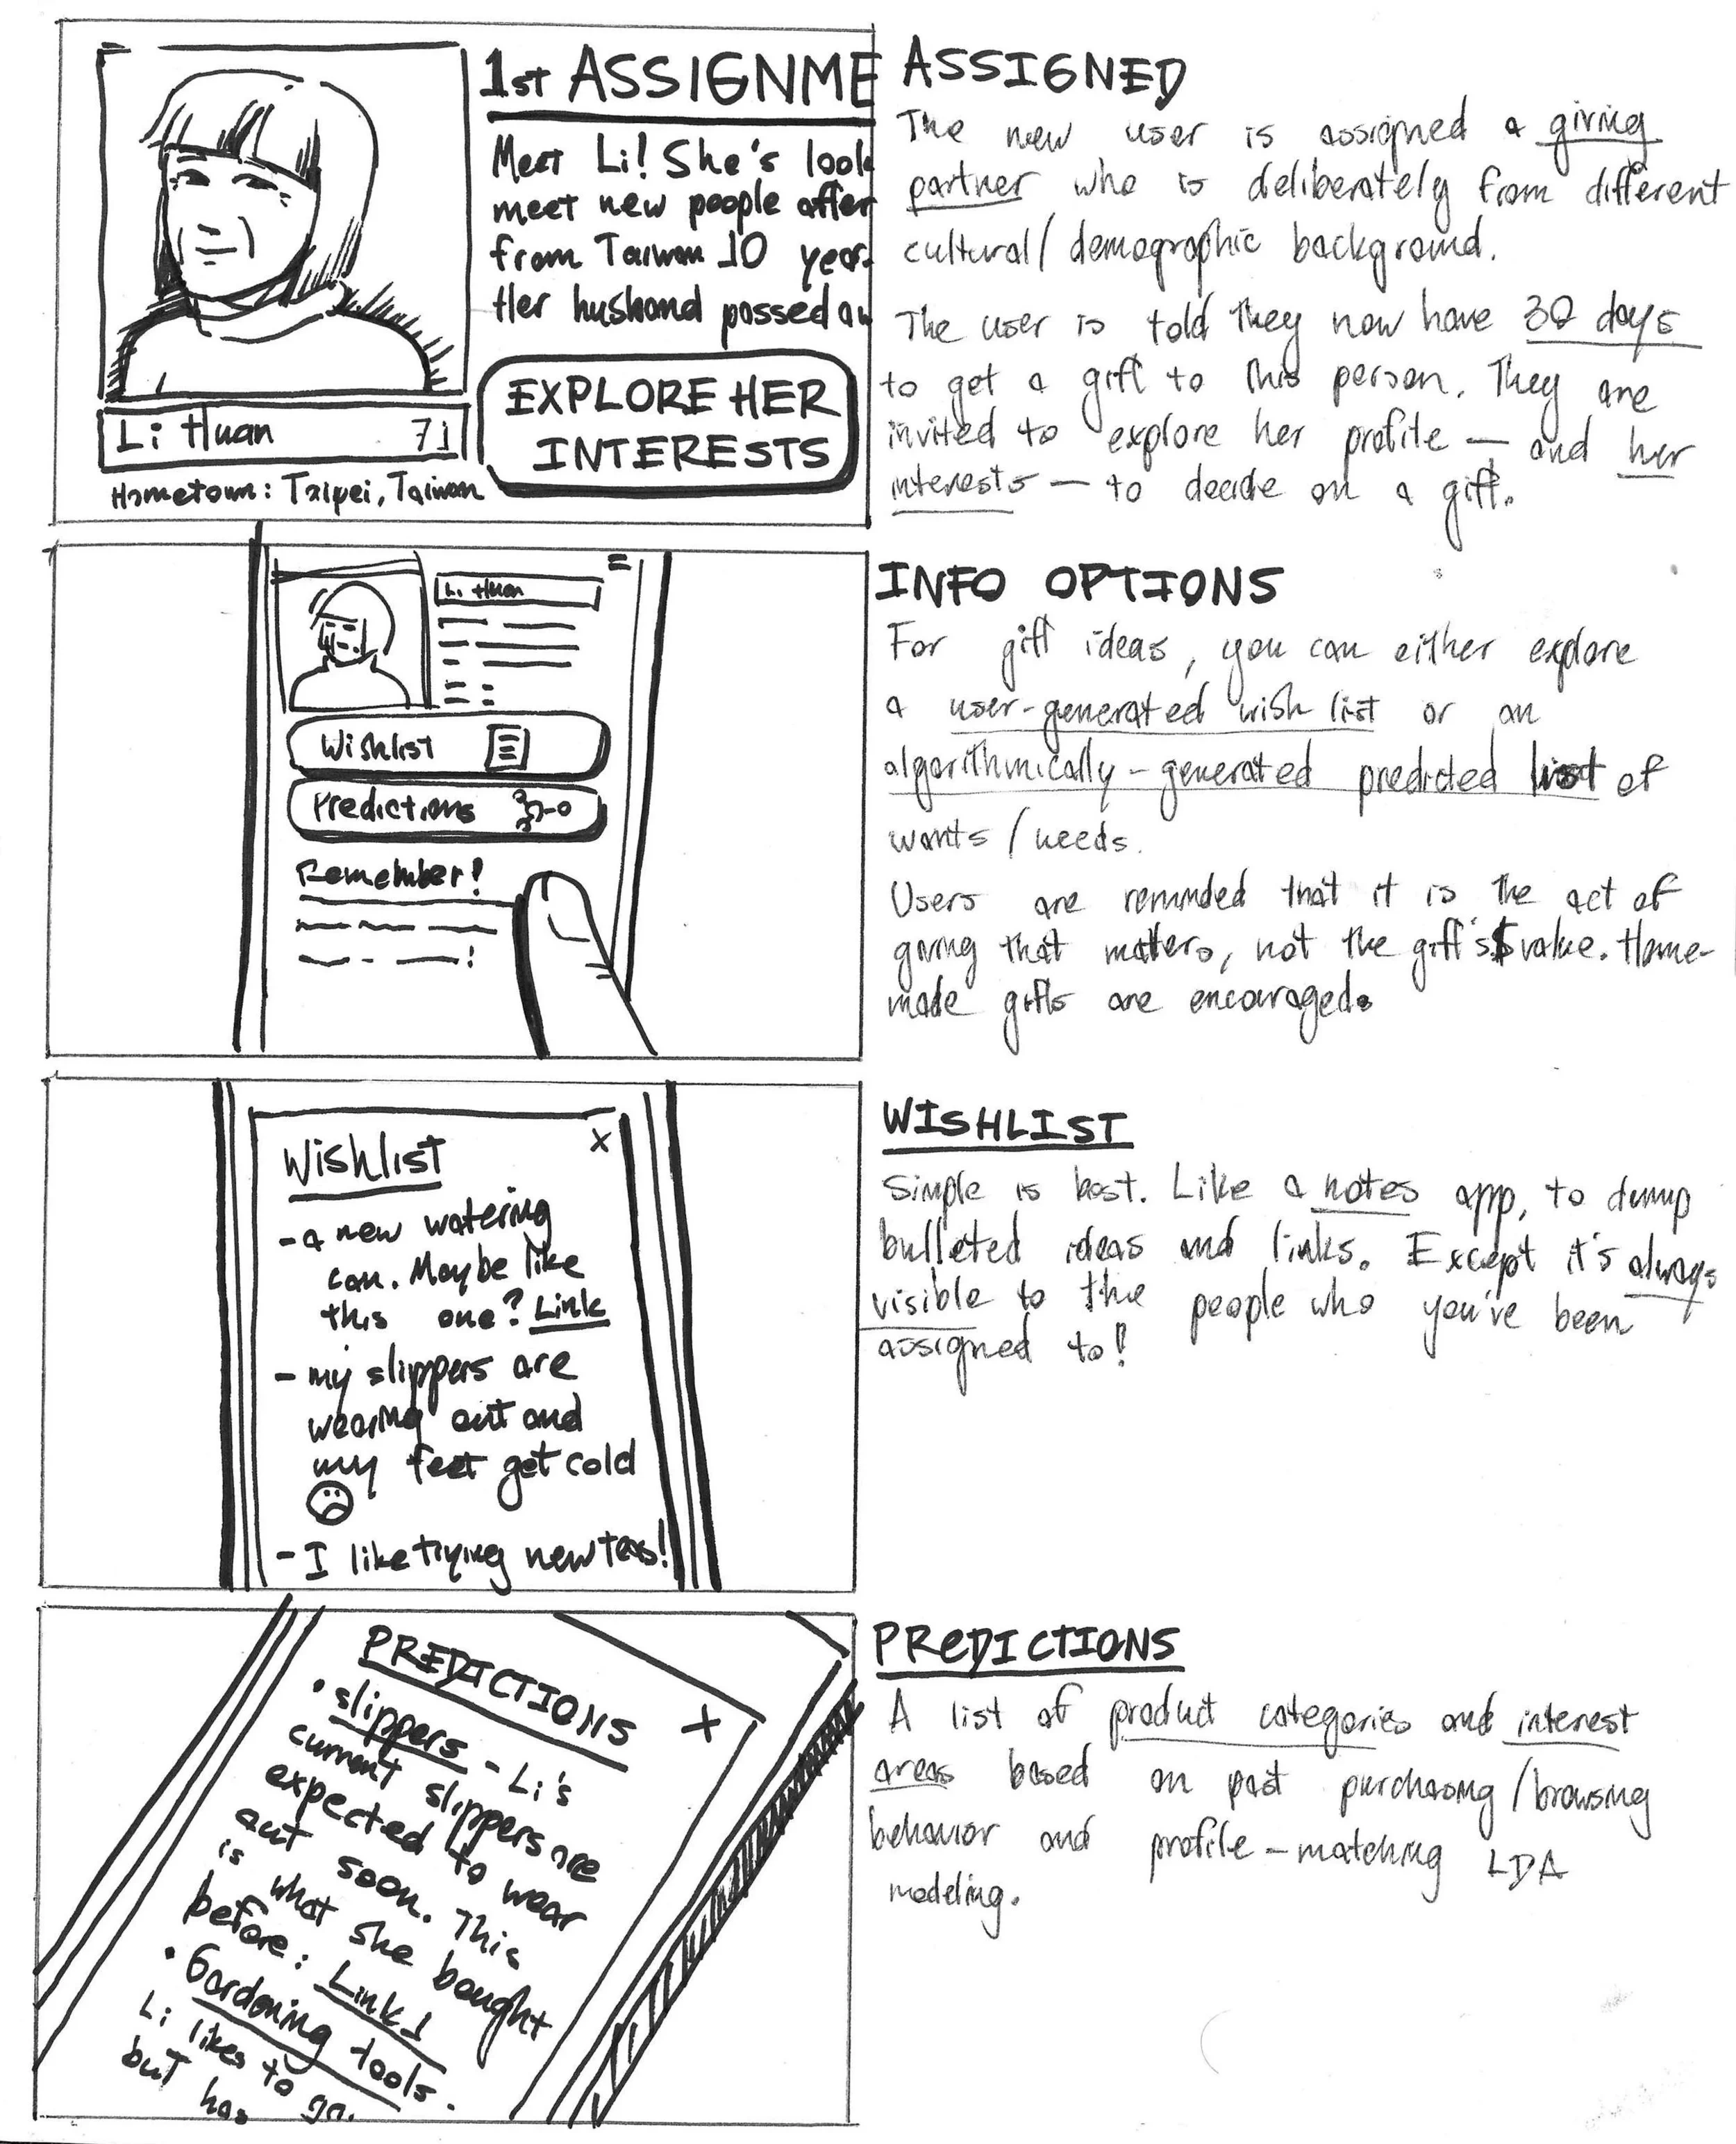 1st ASSIGNME
Meet Li! She's look
meet new people after
from Taiwan 10 year
Her husband passed aw
EXPLORE HER
INTERESTS
Li Huan 71
Hometown: Taipei, Taiwan
ASSIGNED
The new user is assigned a giving
partner who is deliberately from different
cultural/demographic background.
The user is told they now have 30 days
to get a gift to this person. They are
invited to explore her profile — and her
interests — to decide on a gift.
Li Huan
Wishlist
Predictions
Remember!
INFO OPTIONS
For gift ideas, you can either explore
a user-generated wish list or an
algorithmically-generated predicted list of
wants/needs.
Users are reminded that it is the act of
giving that matters, not the gift's $ value. Home-
made gifts are encouraged.
Wishlist X
- a new watering
can. Maybe like
this one? Link
- my slippers are
wearing out and
my feet get cold
☹
- I like trying new teas!
WISHLIST
Simple is best. Like a notes app, to dump
bulleted ideas and links. Except it's always
visible to the people who you've been
assigned to!
PREDICTIONS X
• slippers - Li's
current slippers are
expected to wear
out soon. This
is what she bought
before: Link 1
• Gardening tools.
Li likes to ga.
but has
PREDICTIONS
A list of product categories and interest
areas based on past purchasing/browsing
behavior and profile-matching LDA
modeling.